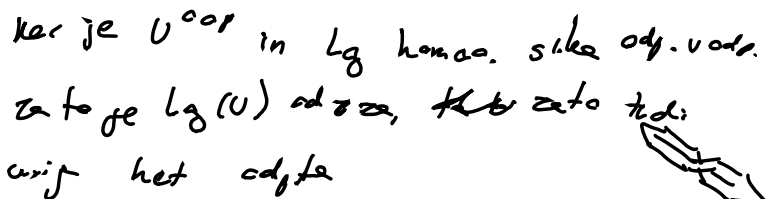 Ker je U^odp in Lg homeo. slika odp. v odp.
zato je Lg(U) odprta, zato tudi
unija het odprta